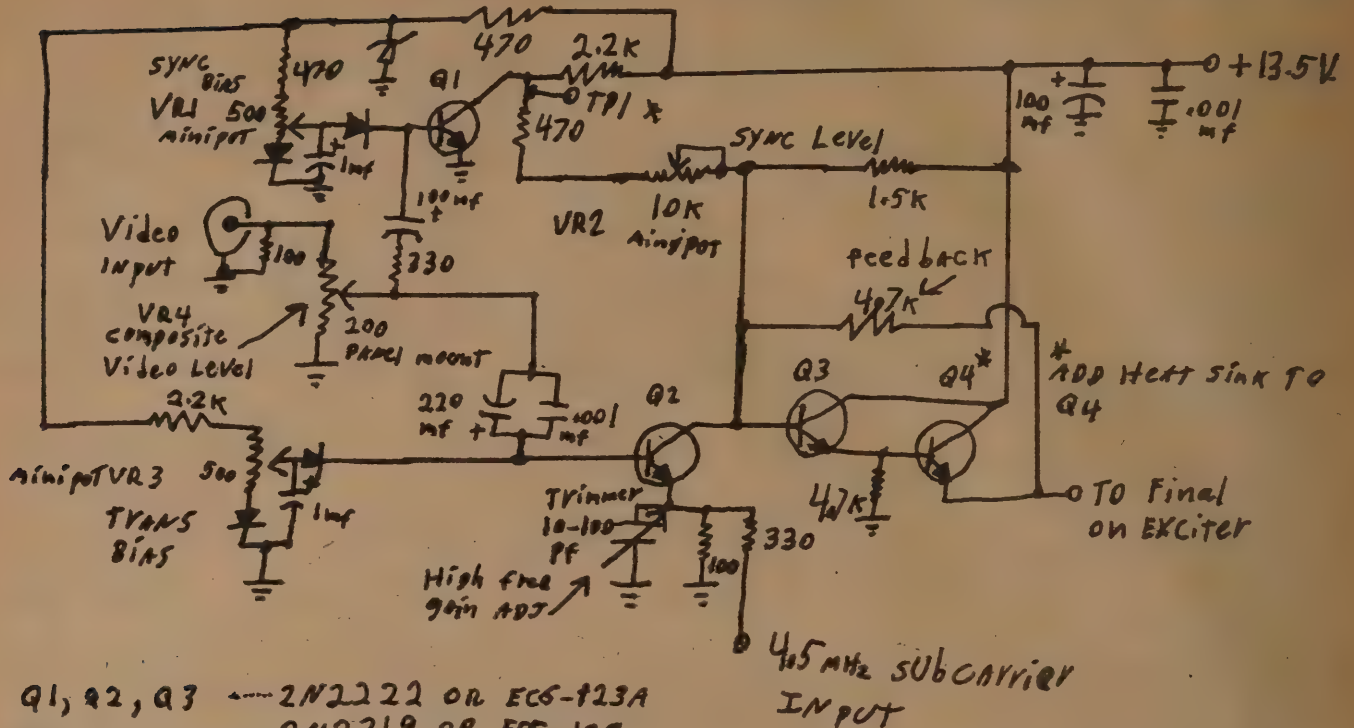 470
2.2K
+13.5V
SYNC
BIAS
470
Q1
TP1 *
100
mf
.001
mf
VR1 500
minipot
1mf
470
SYNC Level
100mf
+
VR2
10K
minipot
1.5K
Video
INput
100
330
feedback
4.7K
VR4
composite
Video Level
200
PANEL mount
2.2K
220
mf
+
.001
mf
Q2
Q3
Q4*
*
ADD Heat sink TO
Q4
minipot VR3
500
1mf
TRANS
BIAS
Trimmer
10-100
Pf
4.7K
TO Final
on EXciter
100
330
High freq
gain ADJ
4.5 MHz SUbcarrier
INput
Q1, Q2, Q3 ---- 2N2222 OR ECG-123A